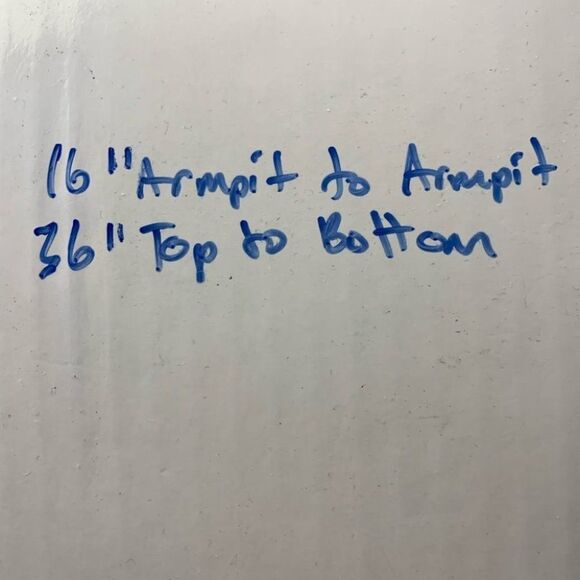 16" Armpit to Armpit
36" Top to Bottom